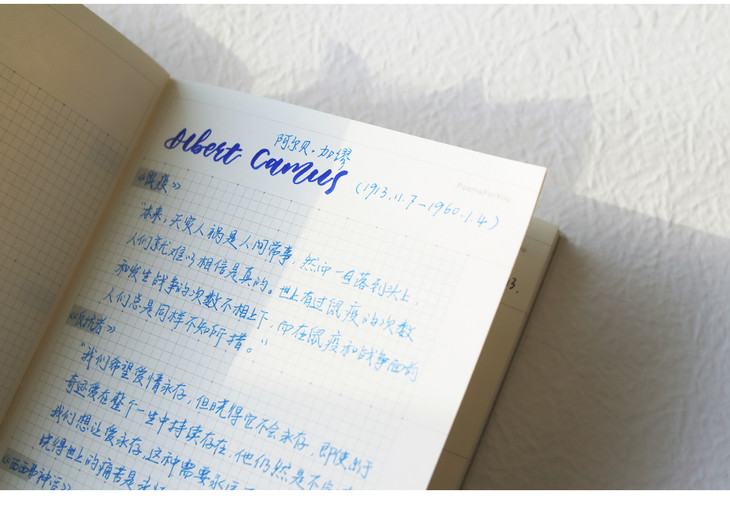 阿尔贝·加缪
Albert Camus
(1913.11.7—1960.1.4)
《鼠疫》
"本来,天灾人祸是人间常事,然而一旦落到头上,
人们就难以相信是真的。世上有过鼠疫的次数
和发生战争的次数不相上下,而在鼠疫和战争面前
人们总是同样不知所措。"
《反抗者》
"我们希望爱情永存,但晓得它不会永存,即使出于
奇迹爱在整个一生中持续存在,他仍然是不完
我们想让爱永存,这种需要永
晓得世上的痛苦是永
《西西弗神话》